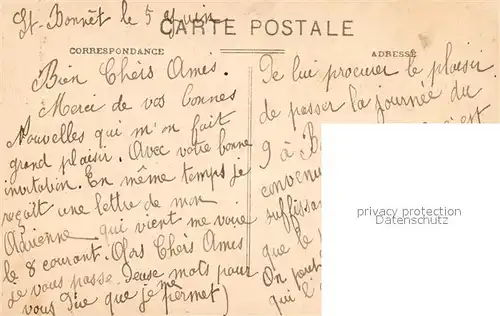 St-Bonnêt le 5 Juin
CARTE POSTALE
CORRESPONDANCE
ADRESSE
Bien Chèrs Amis.
Merci de vos bonnes
Nouvelles qui m'on fait
grand plaisir. Avec votre bonne
invitation. En même temps je
reçoit une lettre de mon
Adrienne qui vient me voire
le 8 courant. Alors Chèrs Amis
je vous passe Deuse mots pour
vous Dire que je me permet)
De lui procurer le plaisir
de passer la journée du
9 à
c'est
convenu
que le
On peut
qui l'a
privacy protection
www.delcampe.net